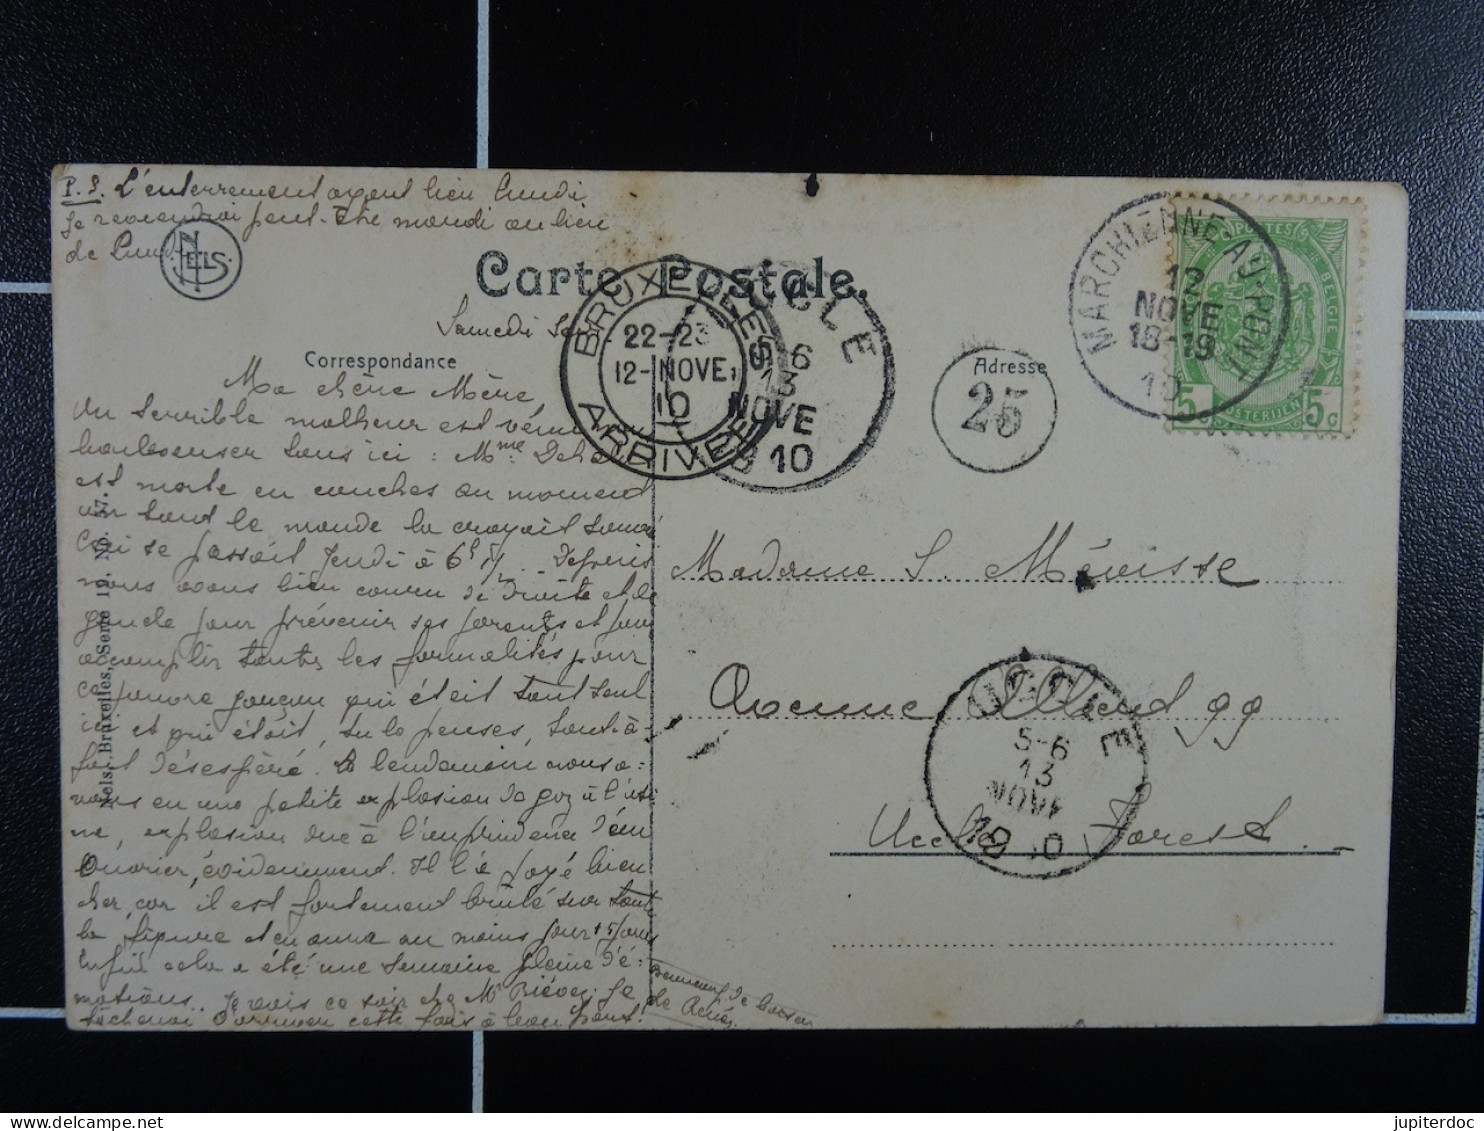 P.S. L'enterrement ayant lieu lundi,
je reviendrai peut-être mardi au lieu
de Lundi
NELS
Carte Postale.
Samedi Soir
Correspondance
Adresse
Ma chère Mère,
Un terrible malheur est venu
bouleverser tous ici : Mme
est morte en couches au moment
où tout le monde la croyait
Ceci se passait Jeudi à 6h ½. Depuis
nous avons bien couru de droite et de
gauche pour prévenir ses parents et pour
accomplir toutes les formalités pour
ce pauvre garçon qui était tout seul
ici et qui était, tu le penses, tout-à-
fait désespéré. Le lendemain nous a-
vons eu une petite explosion de gaz à l'usi
ne, explosion due à l'imprudence d'un
Ouvrier, évidemment. Il l'a payé bien
cher car il est fortement brûlé sur toute
la figure et en aura au moins pour 15 jours
Enfin cela a été une semaine pleine d'é-
motions. Je vais ce soir chez Mr Biévez. Je
tâcherai d'arriver cette fois à bon port.
Beaucoup de baisers
de René.
Nels, Bruxelles, Serie 19, No. 137.
BRUXELLES
22-23
12-NOVE.
10
ARRIVEE
UCCLE
5-6
13
NOVE
10
25
MARCHIENNE-AU-PONT
12
NOVE
18-19
10
POSTES
BELGIE
5c
5c
Madame S. Mévisse
Avenue Albert 99
Uccle Forest
UCCLE
5-6
13
NOVE
10
jupiterdoc